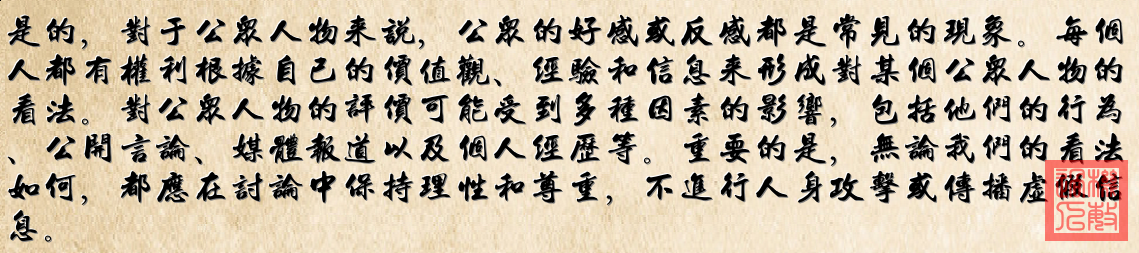 是的，對于公眾人物來説，公眾的好感或反感都是常見的現象。每個
人都有權利根據自己的價值觀、經驗和信息來形成對某個公眾人物的
看法。對公眾人物的評價可能受到多種因素的影響，包括他們的行為
、公開言論、媒體報道以及個人經歷等。重要的是，無論我們的看法
如何，都應在討論中保持理性和尊重，不進行人身攻擊或傳播虛假信
息。